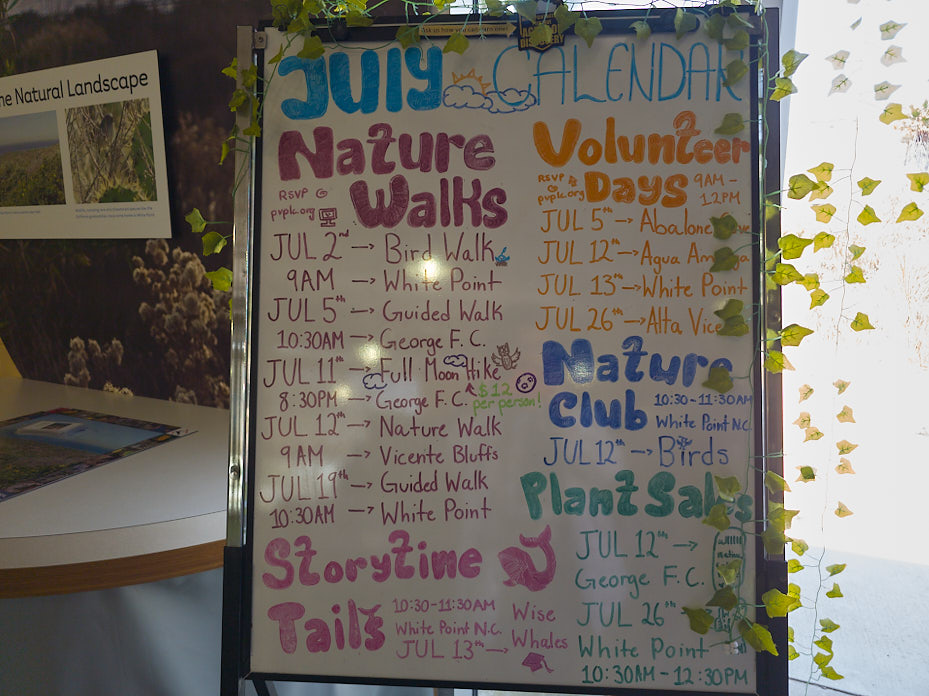 he Natural Landscape
Ask us how you can earn one!
JULY CALENDAR
Nature
Walks
RSVP @
pvplc.org
JUL 2nd → Bird Walk
9AM → White Point
JUL 5th → Guided Walk
10:30AM → George F.C.
JUL 11th → Full Moon Hike
8:30PM → George F.C.
$12
per person!
JUL 12th → Nature Walk
9AM → Vicente Bluffs
JUL 19th → Guided Walk
10:30AM → White Point
Storytime
Tails
10:30-11:30AM
White Point N.C.
JUL 13th →
Wise
Whales
Volunteer
Days
RSVP
@
pvplc.org
9AM -
12PM
JUL 5th → Abalone
JUL 12th → Agua
JUL 13th → White Point
JUL 26th → Alta
Nature
Club
10:30-11:30AM
White Point N.C.
JUL 12th → Birds
Plant Sales
JUL 12th →
George F.C.
JUL 26th
White Point
10:30AM - 12:30PM